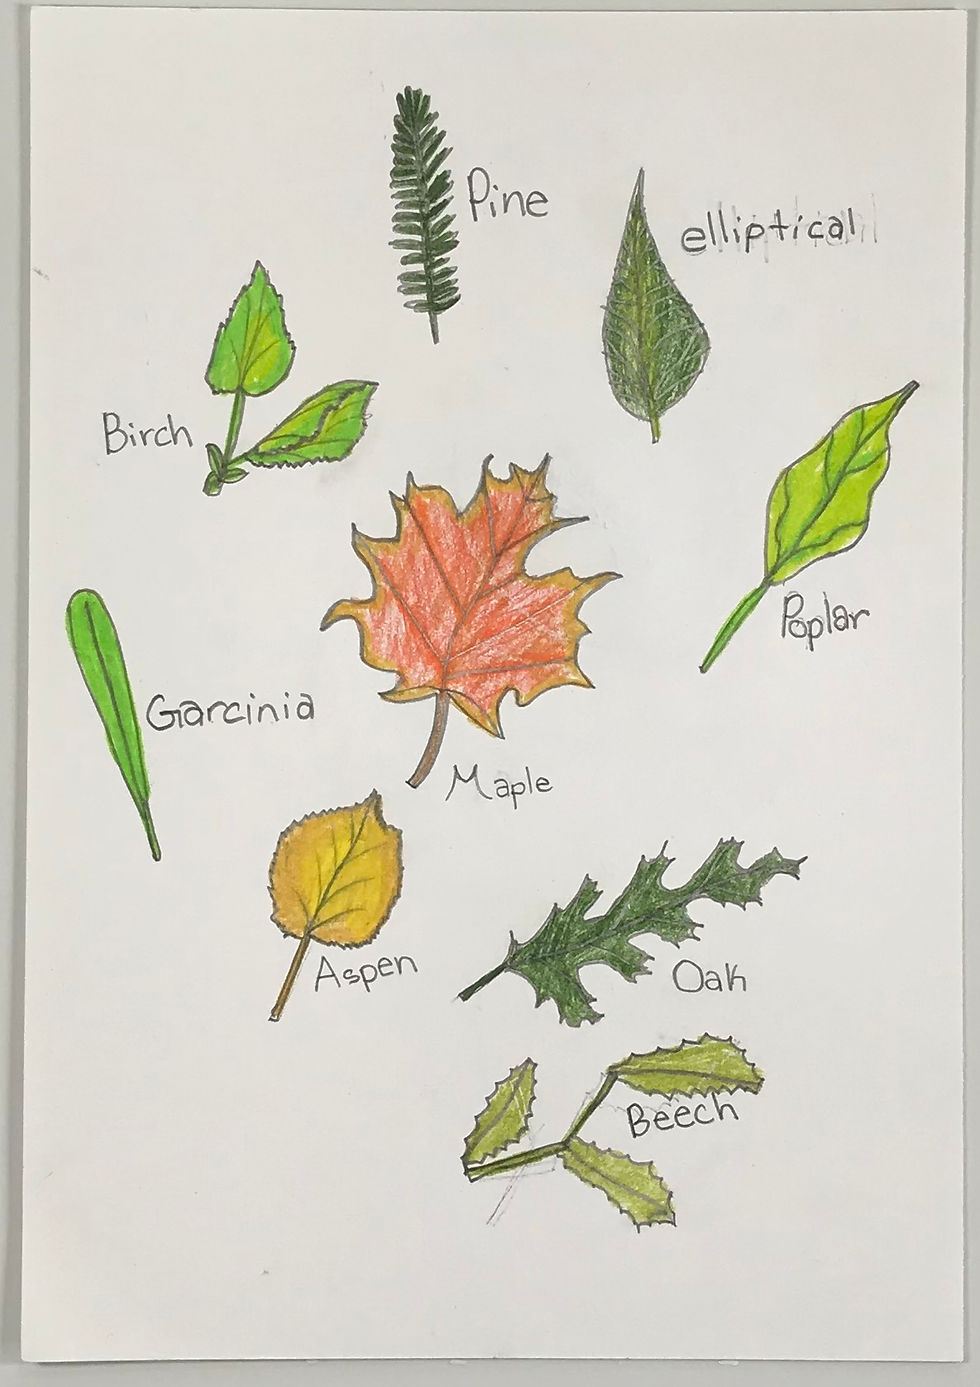 Pine
elliptical
Birch
Poplar
Garcinia
Maple
Aspen
Oak
Beech